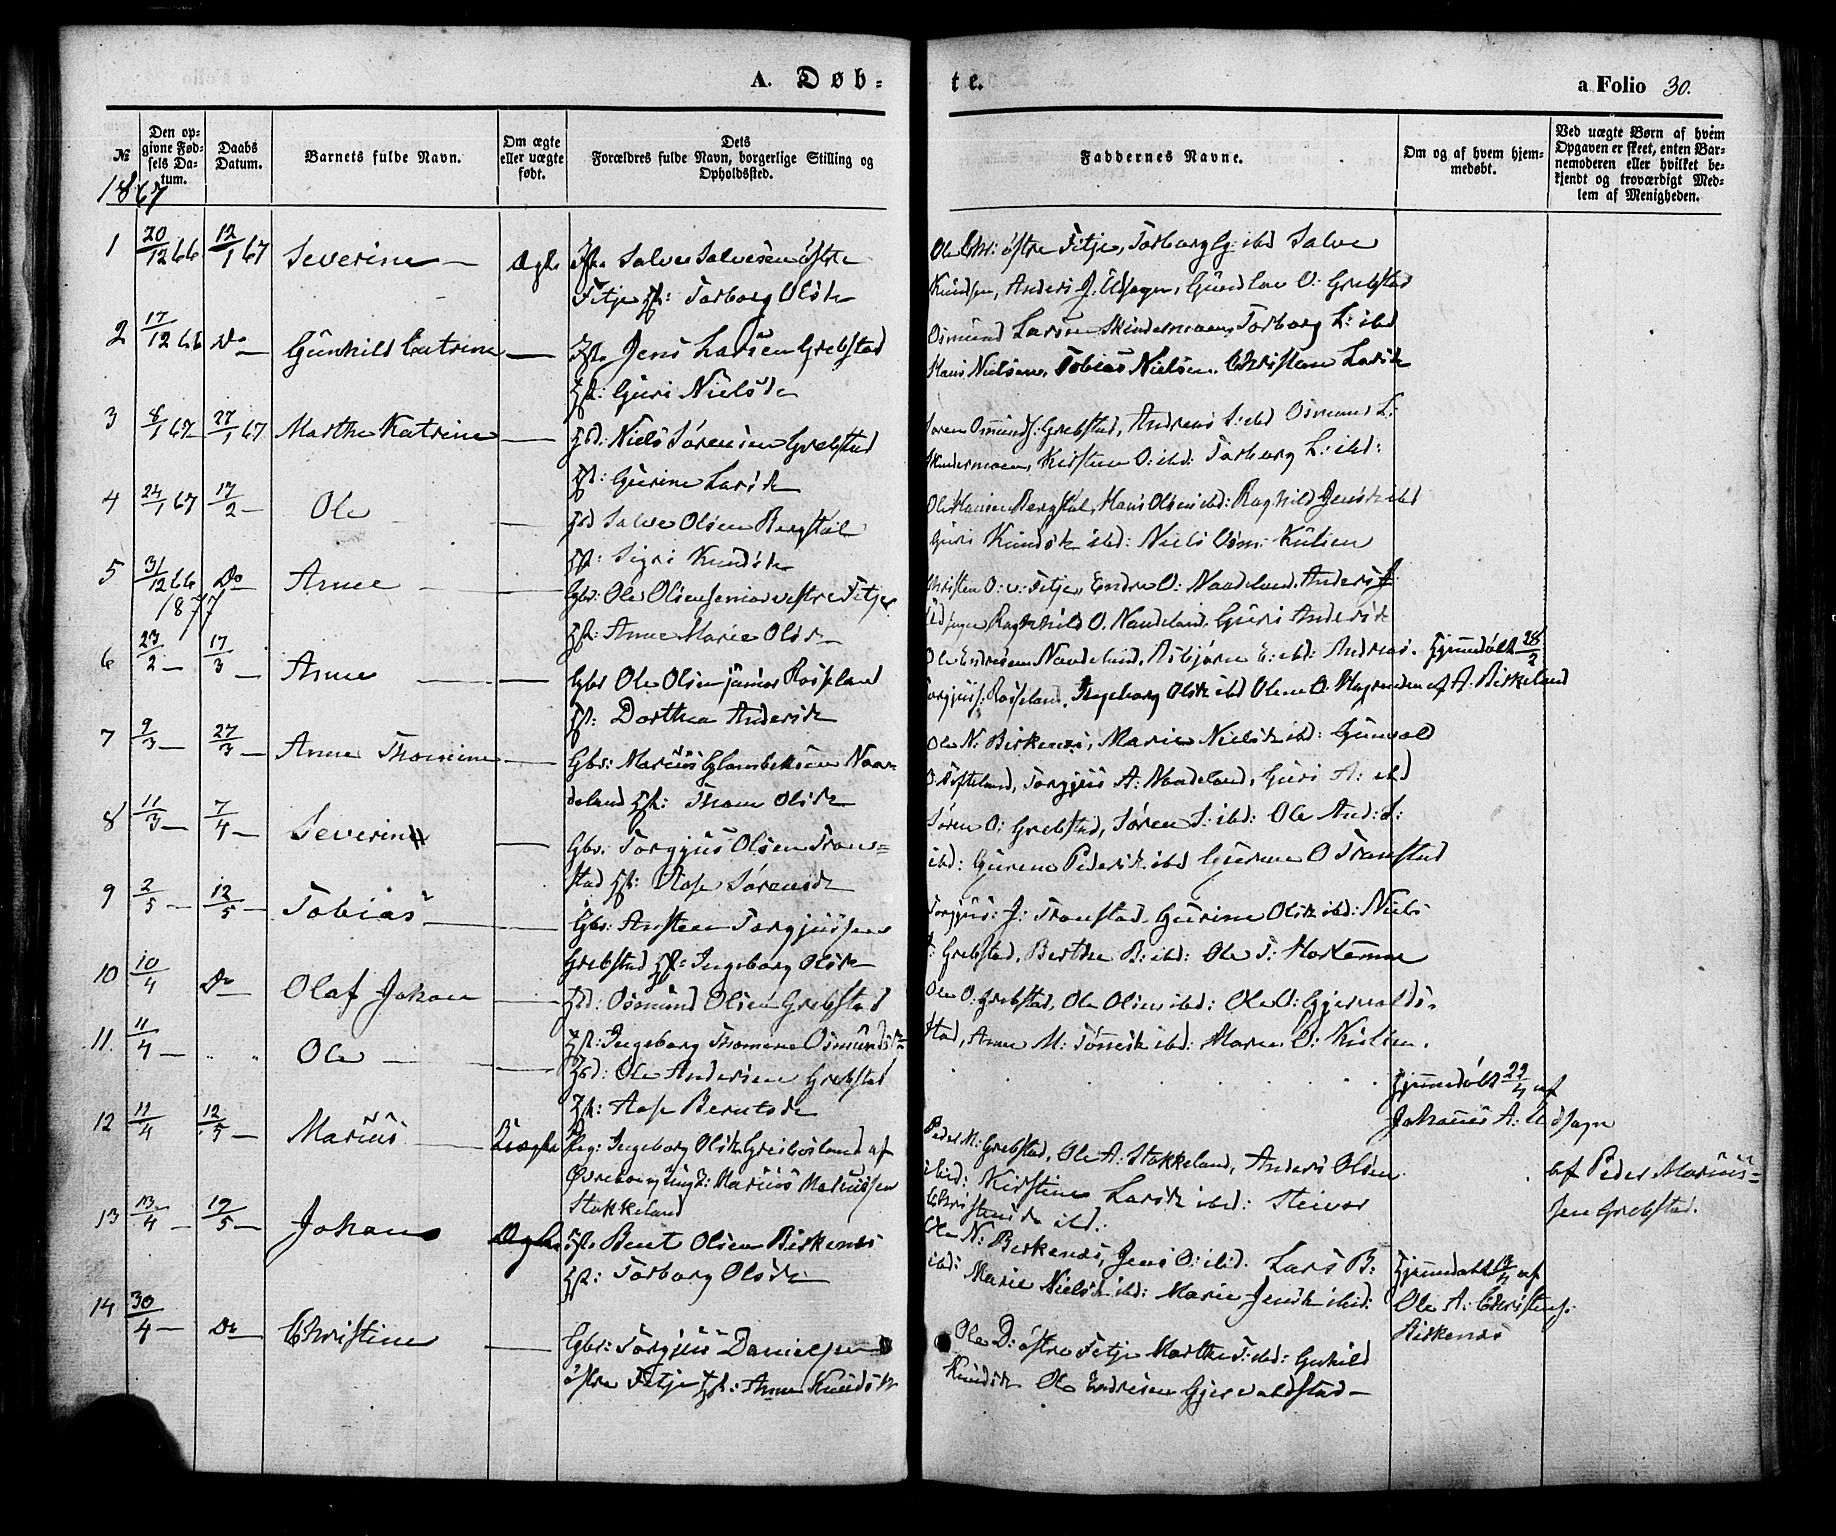 A. Døb=
te.
a Folio 30.
№
Den op=
givne Fød=
sels Da=
tum.
Daabs
Datum.
Barnets fulde Navn.
Om ægte
eller uægte
født.
Dets
Forældres fulde Navn, borgerlige Stilling og
Opholdssted.
Faddernes Navne.
Om og af hvem hjem-
medøbt.
Ved uægte Børn af hvem
Opgaven er skeet, enten Bar-
nemoderen eller hvilket be-
kjendt og troværdigt Med-
lem af Menigheden.
1867
1 20/12 66 12/1 67 Severine — Ægte Salve Salvesen østre
Fitje Torborg Olsdr
Ole Chr: østre Fitje, Torborg G: ibd Salve
Knudsen, Anders J: Udsogn, O: Grebstad
2 17/12 66 Do — Gunhild Catrine — Jens Larsen Grebstad
Guri Nielsdr
Osmund Larsen Skindermoen, Torborg L: ibd
Hans Nielsen, Tobias Nielsen, Larsdr
3 8/1 67 27/1 67 Marthe Katrine — Niels Sørensen Grebstad
Gurine Larsdr
Søren Osmunds: Grebstad, Andreas S: ibd Osmund L:
Skindermoen, Kirsten O: ibd: Torborg L: ibd:
4 24/1 67 17/2 Ole — Salve Olsen Bergstøl
Sigri Knudsdr
Ole Hansen Bergstøl, Hans Olsen ibd: Raghild Jensdr ibd
Guri Knudsdr ibd: Niels Osm:
5 31/12 66 Do — Anne — Gbr: Ole Olsen senior vestre Fitje
Anne Marie Olsdr
Christen O: v: Fitje, Endre O: Naadeland, Anders J:
Udsogn O. Naadeland, Guri Andersdr
1877
6 23/2 — 17/3 — Anne — Gbr Ole Olsen junior Rosseland
Dorthea Andersdr
Ole Endresen Naadeland, Asbjørn E: ibd: Andreas
Torgjuss: Rosseland, Ingeborg Olsdr ibd Olene O:
Hjemdøbt 28/2
af A. Birkeland
7 9/3 — 27/3 — Anne Thomine — Gbr: Marius Naa=
deland Olsdr
Ole N: Birkenes, Marie Nielsdr ibd: Gunvald
Torgjus A: Naadeland, Guri A: ibd
8 11/3 — 7/4 — Severine — Gbr: Torgjus Olsen Tron=
stad Aase Sørensdr
Søren O: Grebstad, Søren S: ibd: Ole And: S:
ibd: Gurine Pedersdr ibd Gurine O Tronstad
9 2/5 — 12/5 — Tobias — Gbr: Ansten Torgjussen
Grebstad Ingeborg Olsdr
Torgjus: J: Tronstad, Gurine Olsdr ibd: Niels
Grebstad, Berthe B: ibd: Ole T:
10 10/4 Do — Olaf Johan — Osmund Olsen Grebstad
Ingeborg Thomine Osmundsdr
Ole O: Grebstad, Ole Olsen ibd: Ole O: Gjervolds=
stad, Anne M: Tønnesdr ibd: Maren O:
11. 11/4 — " " Ole — Ole Andersen Grebstad
Aase Berntsdr
Hjemdøbt 22/4 af
Johannes A: Udsogn
12 11/4 12/5 — Marius — Uægte Pig: Ingeborg Olsdr Greibesland af
Øvrebø og Ungk: Marius Mariussen
Stokkeland
Peder M: Grebstad, Ole A: Stokkeland, Anders Olsen
ibid: Kirstine Larsdr ibed: Steivor
Christensdr ibd.
af Peder Marius=
sen Grebstad.
13 13/4 — 12/5 — Johan — Ægte Bent Olsen Birkenes
Torborg Olsdr
Ole N: Birkenes, Jens O: ibid. Lars B:
ibd: Marie Nielsdr ibd: Marie Jensdr ibid:
Hjemdøbt af
Ole A: Christens:
Birkenes
14 30/4 — Do — Christine — Gbr: Torgjus Danielsen
østre Fitje Anne Knudsdr
Ole D: østre Fitje Marthe T: ibd: Gunhild
Knudsdr Ole Endresen Gjervoldstad —